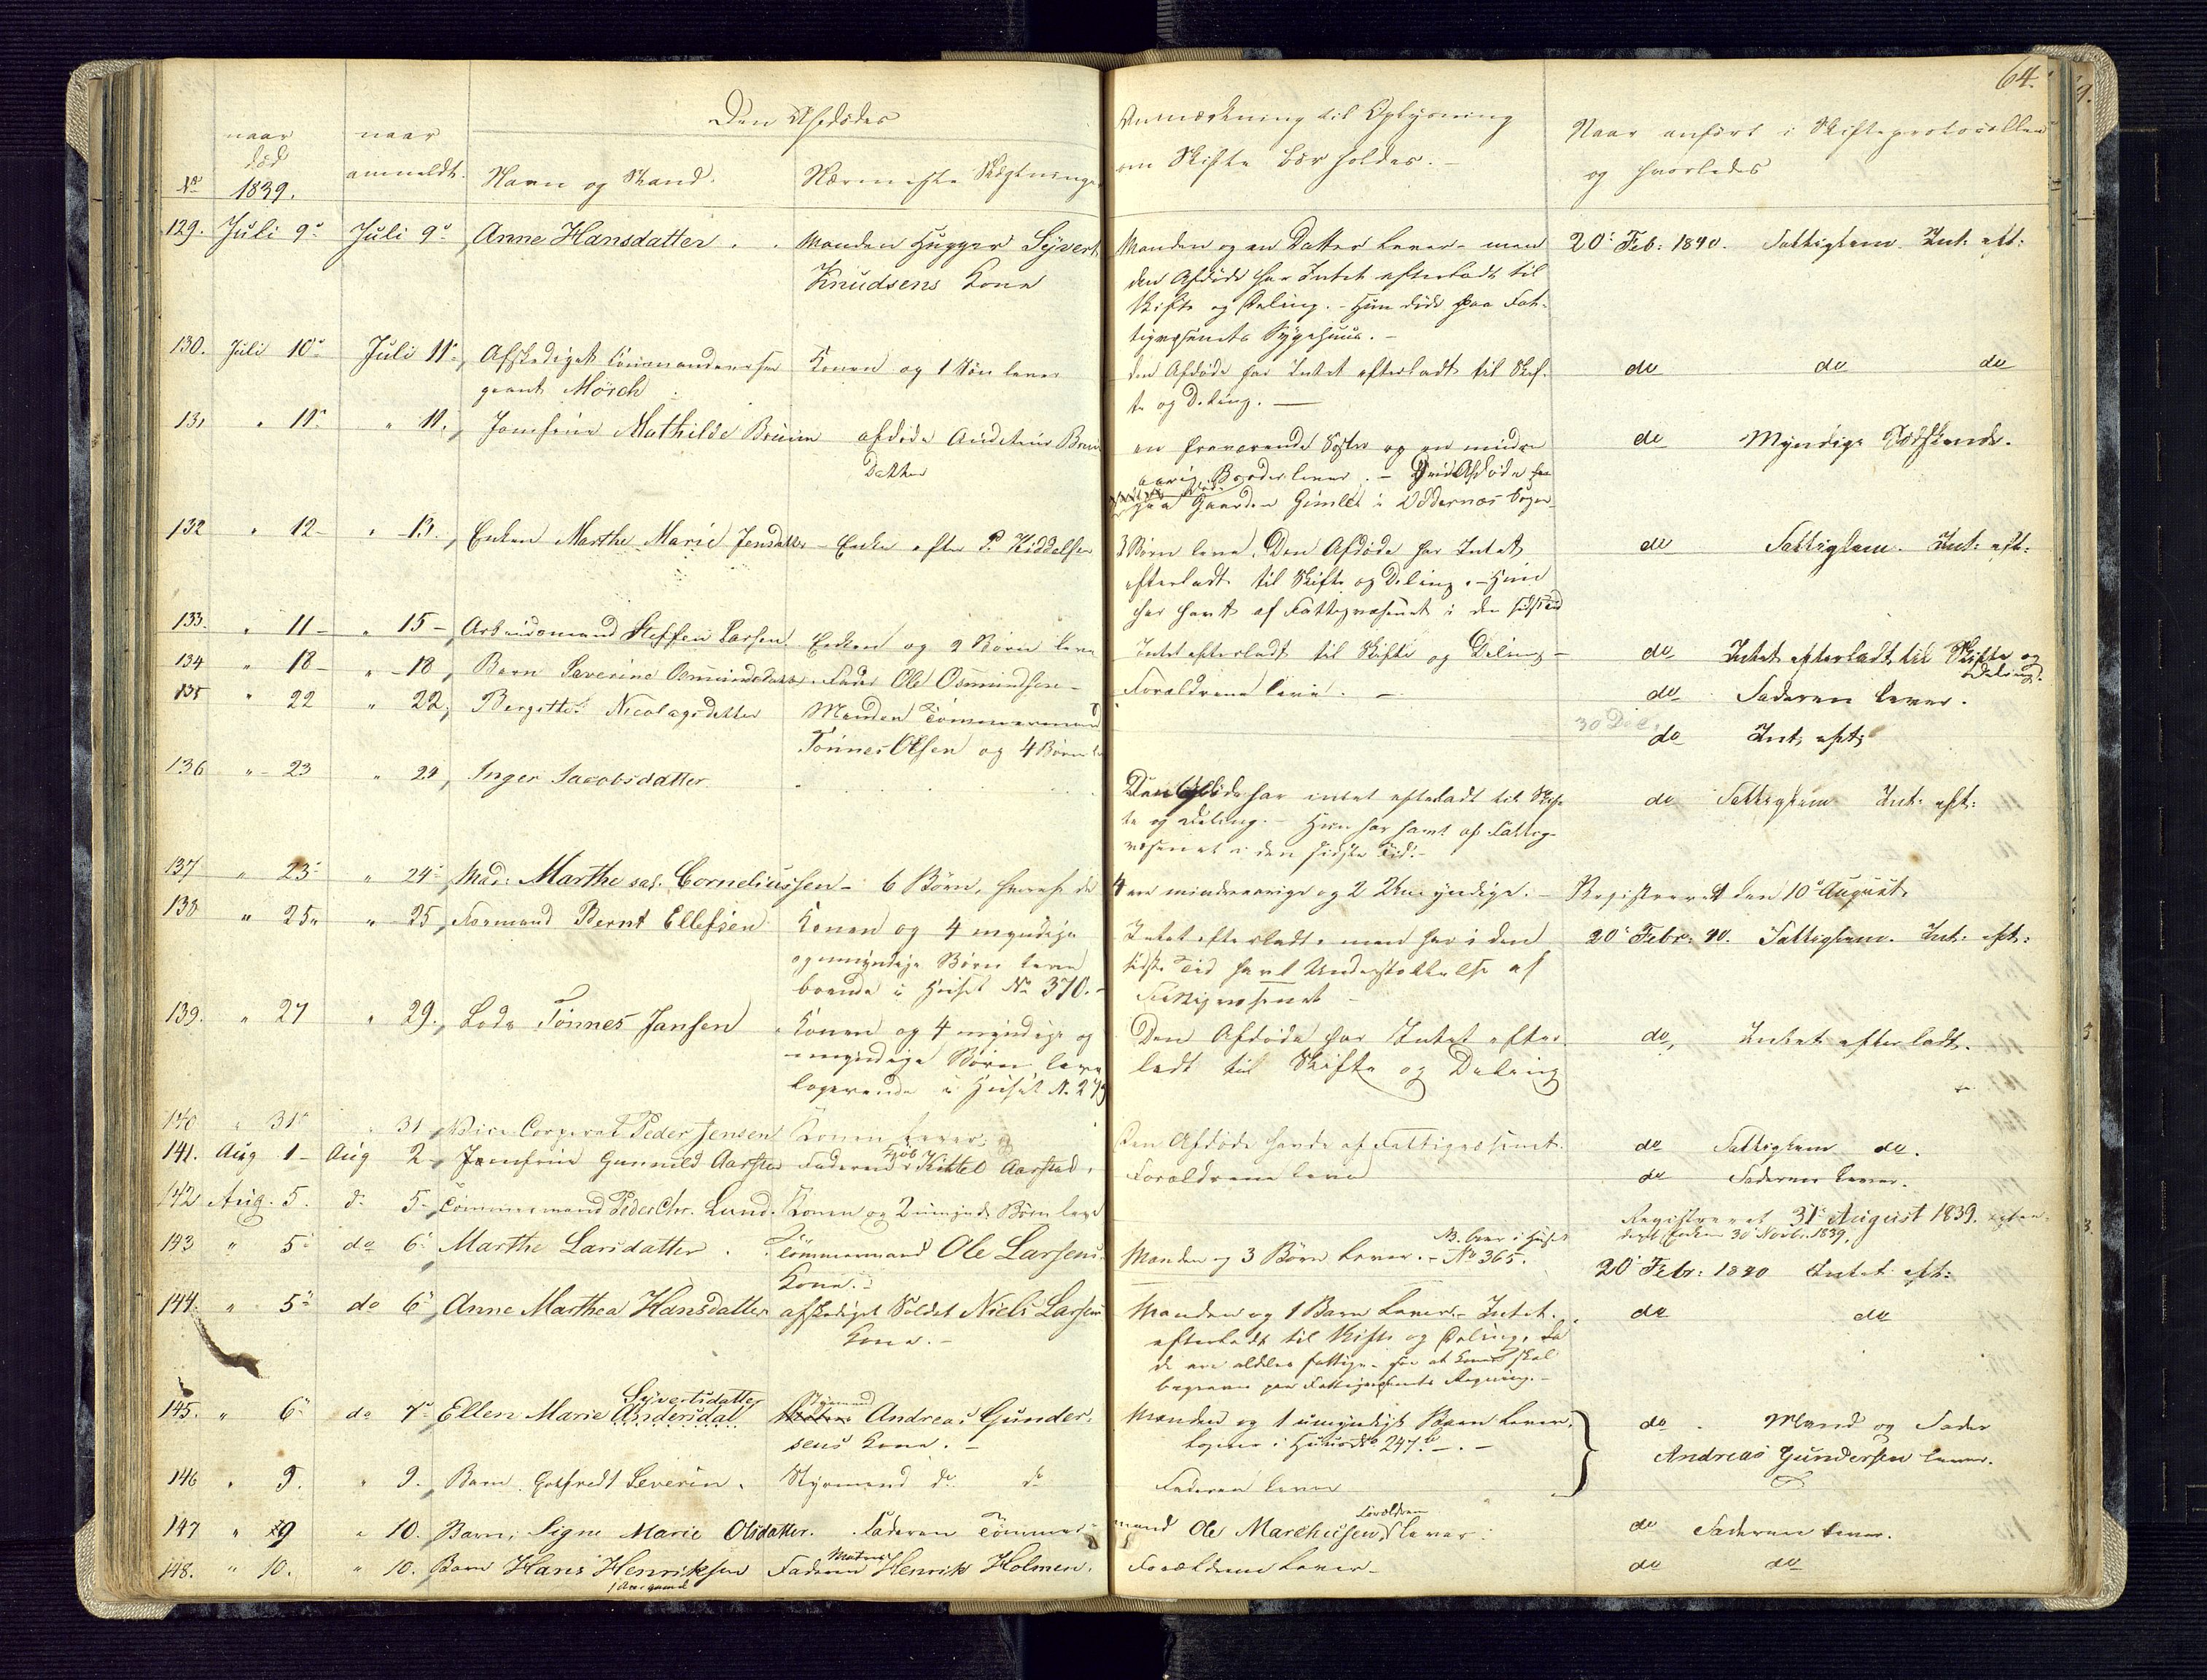 64.
Den Afdødes
No
naar død 1839.
naar anmeldt.
Navn og Stand.
Nærmeste Slægtninge
Anmærkning til Oplysning om Skifte bør holdes. -
Naar anført i Skifteprotocollen og hvorledes
129. Juli 9de Juli 9de Anne Hansdatter . . Manden Hugger Syvert
Knudsens Kone
Manden og en Datter lever - men
den Afdøde har Intet efterladt til
Skifte og Deling. - Hun døde paa Fat-
tigvæsenets Sygehuus. -
20de Feb: 1840. Fattiglem. Int: eft:
130. Juli 10de Juli 11te Afskediget Commandeerser
geant Mörch
Konen og 1 Søn lever
den Afdøde har Intet efterladt til Skif-
te og Deling. -
do do do
131 " 11te " 11. Jomfrue Mathilde Bruun afdøde Auditeur Bruun
Datter
en fraværende Søster og en mindre
aarig Broder lever. - Afdøde
paa Gaarden Gimlet i Oddernes Sogn
do Myndige Sødskende.
132 " 12 - " 13. Enken Marthe Marie Jensdatter - Enke efter P. Kiddelsen
3 Børn leve. Den Afdøde har Intet
efterladt til Skifte og Deling. - Hun
har havt af Fattigvæsenet i den sidste Tid
do Fattiglem. Int: eft:
133. " 11 - " 15 - Arbeidsmand Steffen Larsen. Enken og 2 Børn leve
Intet efterladt til Skifte og Deling -
do Intet efterladt til Skifte og
Deling.
134 " 18 - " 18, Barn Severine Osmundsdatter. Fader Ole Osmundsen -
Forældrene leve. -
do Faderen lever.
135 " 22 " 22, Bergithe Nicolaysdatter Manden Tömmermand
Tönnes Olsen og 4 Børn
30 Dec
do Int: eft:
136 " - 23 " 29, Inger Jacobsdatter.
Den Afdøde har intet efterladt til Skif-
te og Deling. - Hun har havt af Fattig-
væsenet i den sidste Tid. -
do Fattiglem Int: eft:
137 " 23de " 24de Mad: Marthe sal. Corneliussen - 6 Børn, hvoraf de
4 ere mindreaarige og 2 myndige. - Registreret den 10de August.
138 " 25 " 25, Formand Bernt Ellefsen Konen og 4 myndige
og umyndige Børn leve
boende i Huset No 370. -
Intet efterladt, men har i den
sidste Tid havt Understøttelse af
Fattigvæsenet -
20de Febr: 40. Fattiglem. Int: eft:
139. " 27 " 29., Lods Tönnes Jansen Konen og 4 myndige og
umyndige Børn leve
logerende i Huset N.
Den Afdøde har Intet efter
ladt til Skifte og Deling
do, Intet efterladt.
140 " 31te " 31 Vice Corporal Peder Jensen Konen lever.
Den Afdøde havde af Fattigvæsenet.
do Fattiglem do.
141. Aug 1 - Aug 2 - Jomfrue Gunnild Aarstad Faderen Kittel Aarstad.
Forældrene leve
do Faderen lever.
142 Aug. 5. do 5 - Tömmermand Peder Chr. Lund. Konen og 2 umynd: Børn leve
Registreret 31te August 1839.
30te Novbr 1839.
143 " 5te do 6te Marthe Larsdatter . Tömmermand Ole Larsens
Kone. -
Manden og 3 Børn lever. - No 365.
NB. boer i Huset
20de Febr: 1840 Intet eft:
144. " 5te do 6te Anne Marthea Hansdatter afskediget Soldat Niels Larsens
Kone. -
Manden og 1 Barn lever. - Intet.
efterladt til Skifte og Deling, da
de ere aldeles fattige - saa at Konen skal
begraves paa Fattigvæsenets Regning. -
do do
145. " 6te do 7de Ellen Marie Andersdat Syvertsdatter Styrmand Andreas Gunder-
sens Kone. -
Manden og 1 umyndigt Barn lever.
logerer i Huus No 247. -
do . Mand og Fader
Andreas Gundersen lever.
146 " 9. " 9. Barn. Gotfredt Severin. Styrmand do do
Faderen lever
147 " 9 " 10. Barn. Signe Marie Olsdatter. Faderen Tömmer-
mand Ole Marcheusen, Forældren lever.
do Faderen lever.
148. " 10. " 10. Barn Hans Henriksen Faderen Matros Henrik Holmen.
Forældrene lever -
do do